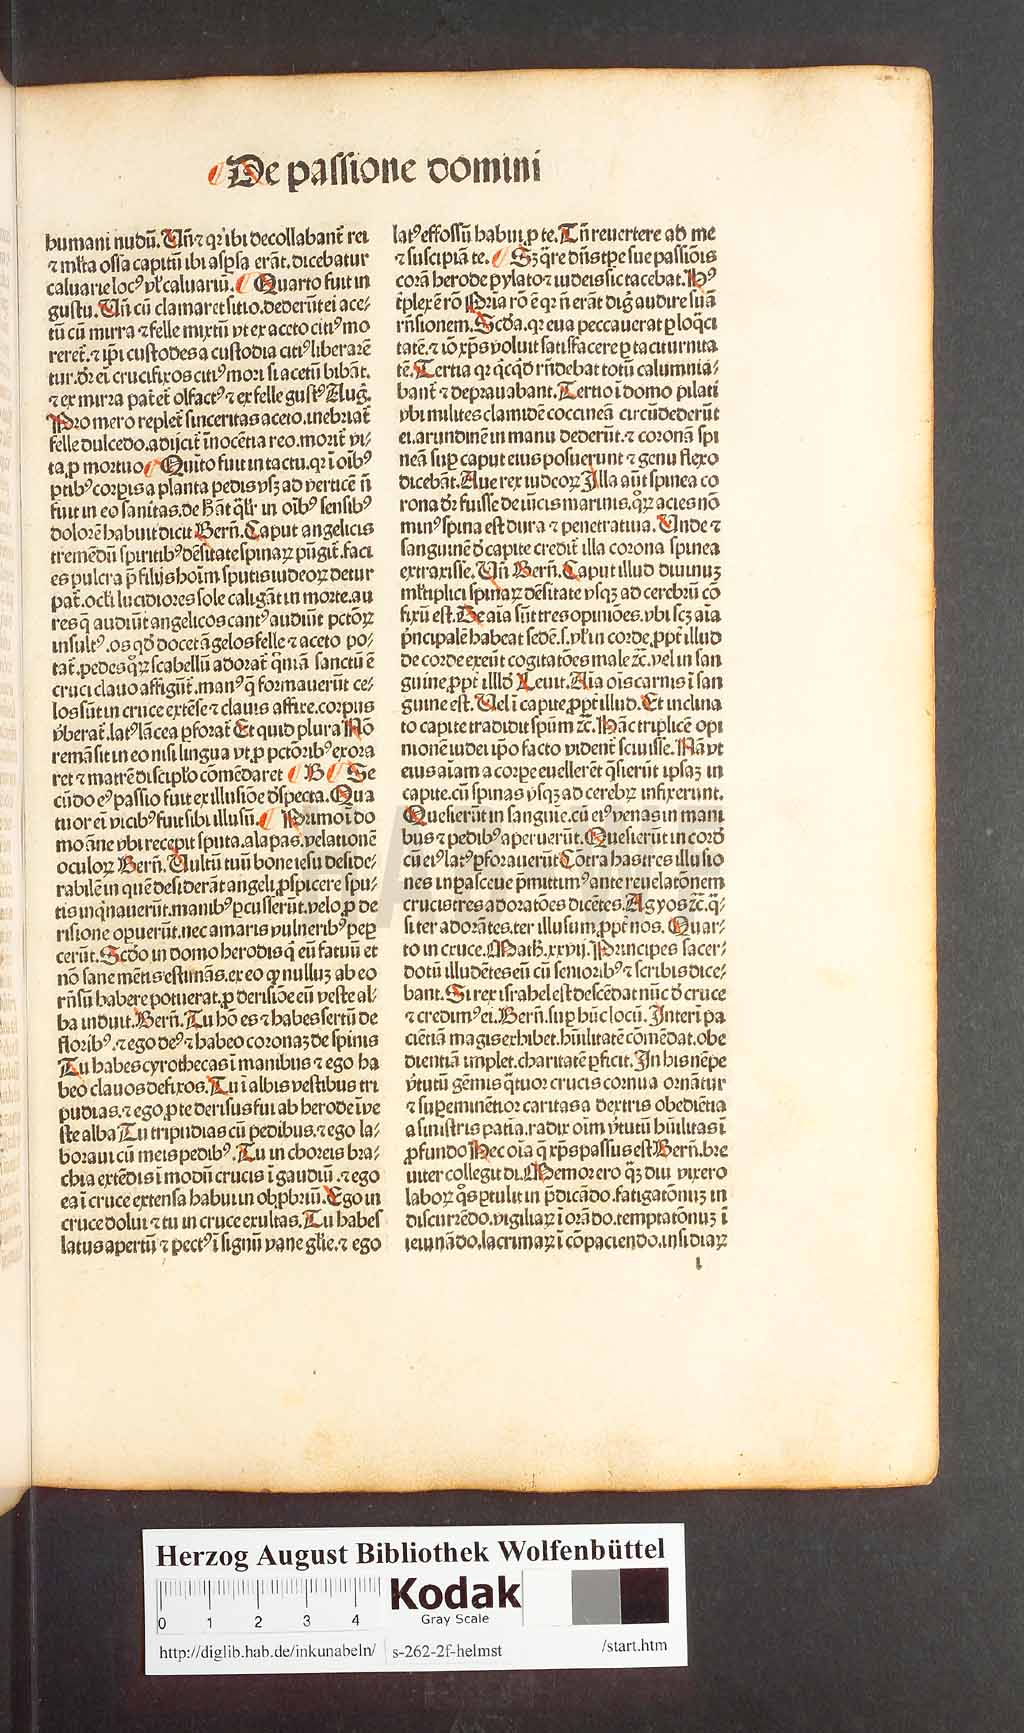 De passione domini
humani nudū. Vñ ⁊ qr ibi decollabant̄ rei
⁊ ml̄ta ossa capitū ibi asp̄sa erāt. dicebatur
caluarie locꝰ vl̄ caluariū. Quarto fuit in
gustu. Vñ cū clamaret sitio. dederūt ei ace-
tū cū mirra ⁊ felle mixtū vt ex aceto citiꝰ mo
reret̄. ⁊ ip̄i custodes a custodia citiꝰ liberarē
tur. dr̄ ei crucifixos citiꝰ mori si acetū bibāt.
⁊ ex mirra pateret̄ olfactꝰ ⁊ ex felle gustꝰ Aug.
Pro mero replet̄ sinceritas aceto. inebriat̄
felle dulcedo. adijcit̄ īnocētia reo. morit̄ vi-
ta, p mortuo Quīto fuit in tactu. qr ī oībꝰ
ptibꝰ corpis a planta pedis vsqꝫ ad verticē ñ
fuit in eo sanitas. de
dolorē habuit dicit Bern̄. Caput angelicis
tremēdū spiritibꝰ dēsitate spinaꝝ pūgit̄. faci
es pulcra p̄ filijs hoīm sputis iudeoꝝ detur
pat̄. ocl̓i lucidiores sole caligāt in morte. au
res q̄ audiūt angelicos cantꝰ audiūt pctōꝝ
insultꝰ. os qd̓ docet āgelos felle ⁊ aceto po-
tat̄. pedes qꝝ scabellū adorat̄ qm̄ā sanctū ē
cruci clauo affigūt̄. manꝰ q̄ formauerūt ce-
los sūt in cruce extēse ⁊ clauis affixe. corpus
v̓berat̄. latꝰ lācea pforat̄ Et quid plura Nō
remāsit in eo nisi lingua vt p pctōribꝰ exora
ret ⁊ matrē discipl̓o cōmēdaret B Se
cūdo eꝰ passio fuit ex illusiōe d̓specta. Qua
tuor eī vicibꝰ fuit sibi illusū. Primo ī do
mo āne vbi recepit sputa. alapas. velationē
oculoꝝ Bern̄. Vultū tuū bone iesu deside-
rabilē in quē desiderāt angeli, pspicere spu-
tis inq̄nauerūt. manibꝰ pcusserūt. velo, p de
risione opuerūt. nec amaris vulneribꝰ pep̱
cerūt. Scd̓o in domo herodis q̄ eū fatuū et
nō sane mētis estimās. ex eo qꝫ nulluꝫ ab eo
rn̄sū habere potuerat. p derisiōe eū veste al-
ba induit. Bern̄. Tu hō es ⁊ habes sertū de
floribꝰ. ⁊ ego deꝰ ⁊ habeo coronaꝫ de spinis
Tu habes cyrothecas ī manibus ⁊ ego ha
beo clauos defixos. Tu ī albis vestibus tri
pudias. ⁊ ego, p te derisus fui ab herode ī ve
ste alba Tu tripudias cū pedibus. ⁊ ego la-
boraui cū meis pedibꝰ. Tu in choreis bra-
chia extēdis ī modū crucis ī gaudiū. ⁊ ego
ea ī cruce extensa habui in obpbriū. Ego in
cruce dolui ⁊ tu in cruce exultas. Tu habes
latus apertū ⁊ pectꝰ ī signū vane gl̓ie. ⁊ ego
latꝰ effossū habui, p te. Tñ reuertere ad me
⁊ suscipiā te. Sꝫ q̄re dn̄s tpe sue passiōis
corā herode pylato ⁊ iudeis sic tacebat. Hꝰ
t̄plex ē rō Pria rō ē qr ñ erāt dig̓ audire suā
rn̄sionem. Scd̓a. qr eua peccauerat p loq̄ci
tatē. ⁊ iō xp̄s voluit satisfacere p taciturnita
tē. Tertia qr qcqd rn̄debat totū calumnia-
bant̄ ⁊ deprauabant. Tertio ī domo pilati
vbi milites clamidē coccineā circūdederūt
ei. arundinē in manu dederūt. ⁊ coronā spi
neā sup caput eius posuerunt ⁊ genu flexo
dicebāt. Aue rex iudeoꝝ Illa aūt spinea co
rona dr̄ fuisse de iūcis marinis. qꝝ acies nō
minꝰ spina est dura ⁊ penetratiua. Unde ⁊
sanguinē d̓ capite credit̄ illa corona spinea
extraxisse. Vñ Bern̄. Caput illud diuinuꝫ
ml̄tiplici spinaꝝ dēsitate vsqꝫ ad cerebrū cō
fixū est. De aīa sūt tres opiniōes. vbi scꝫ aīa
p̓ncipalē habeat sedē. s. vl̓ in corde, ppt̄ illud
de corde exeūt cogitatōes male ⁊c̄. vel in san
guine, ppt̄ illd̓ Leuit. Aīa oīs carnis ī san
guine est. Vel ī capite, ppt̄ illud. Et inclina
to capite tradidit spūm ⁊c̄. Hāc triplicē opi
nionē iudei ip̄o facto vident̄ sciuisse. Nā vt
eius aīam a corpe euellerēt q̄sierūt ipsaꝫ in
capite. cū spinas vsqꝫ ad cerebꝝ infixerunt.
Quesierūt in sanguīe. cū eiꝰ venas in mani
bus ⁊ pedibꝰ aperuerūt. Quesierūt in cord̓
cū eiꝰ latꝰ pforauerūt Cōtra has tres illusio
nes in pasceue p̄mittimꝰ ante reuelatōnem
crucis tres adoratōes dicētes. Agyos ⁊c̄. q̄-
si ter adorātes. ter illusum, ppt̄ nos. Quar-
to in cruce. Math. xxvij. Principes sacer-
dotū illudētes eū cū senioribꝰ ⁊ scribis dice-
bant. Si rex israhel est descēdat nūc d̓ cruce
⁊ credimꝰ ei. Bern̄. sup hūc locū. Interi pa
ciētiā magis exhibet. hūilitatē cōmēdat. obe
dientiā implet. charitatē pficit. In his nēpe
v̓tutū gēmis q̄tuor crucis cornua ornātur
⁊ supeminētior caritas a dextris obediētia
a sinistris patīa. radix oīm v̓tutū hūilitas ī
pfundo Hec oīa q̄ xp̄s passus est Bern̄. bre
uiter collegit di. Memor ero qꝫ diu vixero
laboꝝ q̓s ptulit in p̄dicādo. fatigatōnuꝫ in
discurrēdo. vigiliaꝝ ī orādo. temptatōnuꝫ ī
ieiunādo. lacrimaꝝ ī cōpaciendo. insidiaꝝ
l
Herzog August Bibliothek Wolfenbüttel
0 1 2 3 4
Kodak
Gray Scale
http://diglib.hab.de/inkunabeln/ s-262-2f-helmst /start.htm